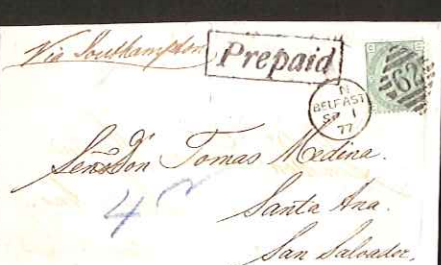 Via Southampton
Prepaid
62
N
BELFAST
SP 1
77
Senor Dn
Don Tomas Medina.
42
Santa Ana.
San Salvador.